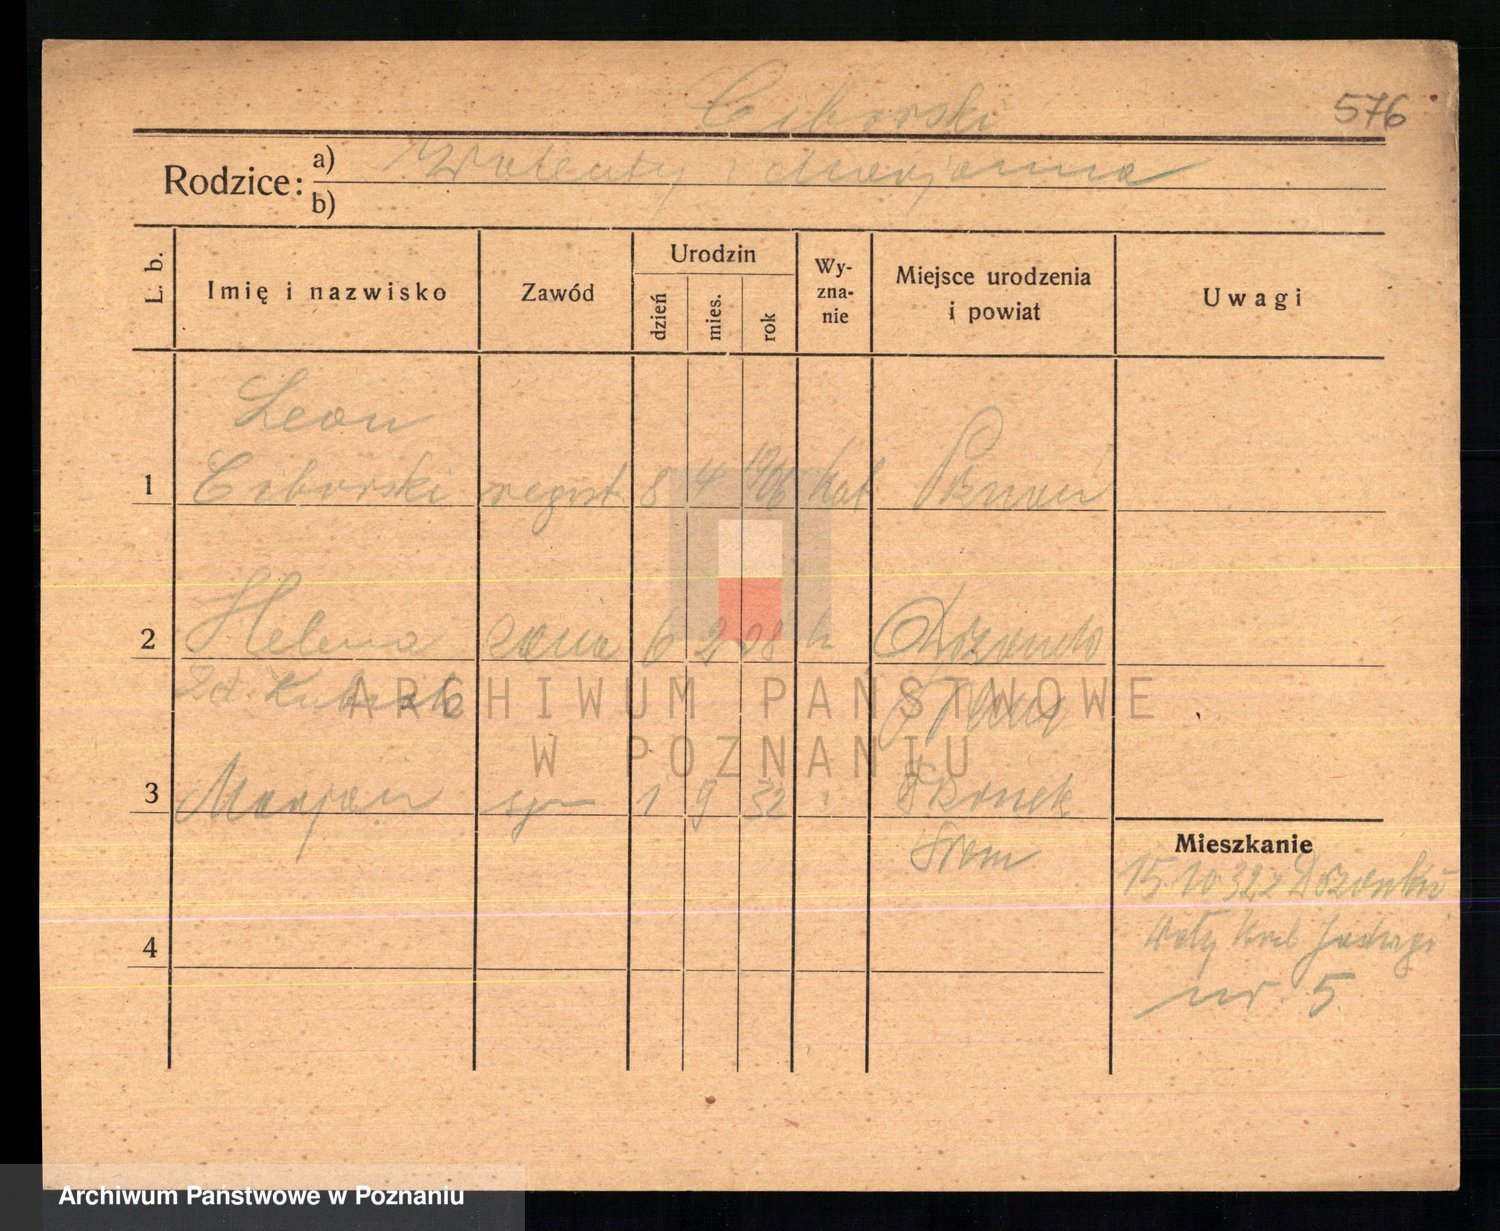 Ciborski 576
Rodzice: a) Walenty i Marjanna
b)
L. b. Imię i nazwisko Zawód Urodzin dzień mies. rok Wy-zna-nie Miejsce urodzenia i powiat Uwagi
Leon
1 Ciborski regist 8 4 1906 kat Poznań
2 Helena żona 6 2 k
Zd. Kubiak
3 Marjan syn 1 9 32
Śrem
Mieszkanie
15 10 32 z
Jadwigi
nr. 5
4
ARCHIWUM PAŃSTWOWE
W POZNANIU
Archiwum Państwowe w Poznaniu